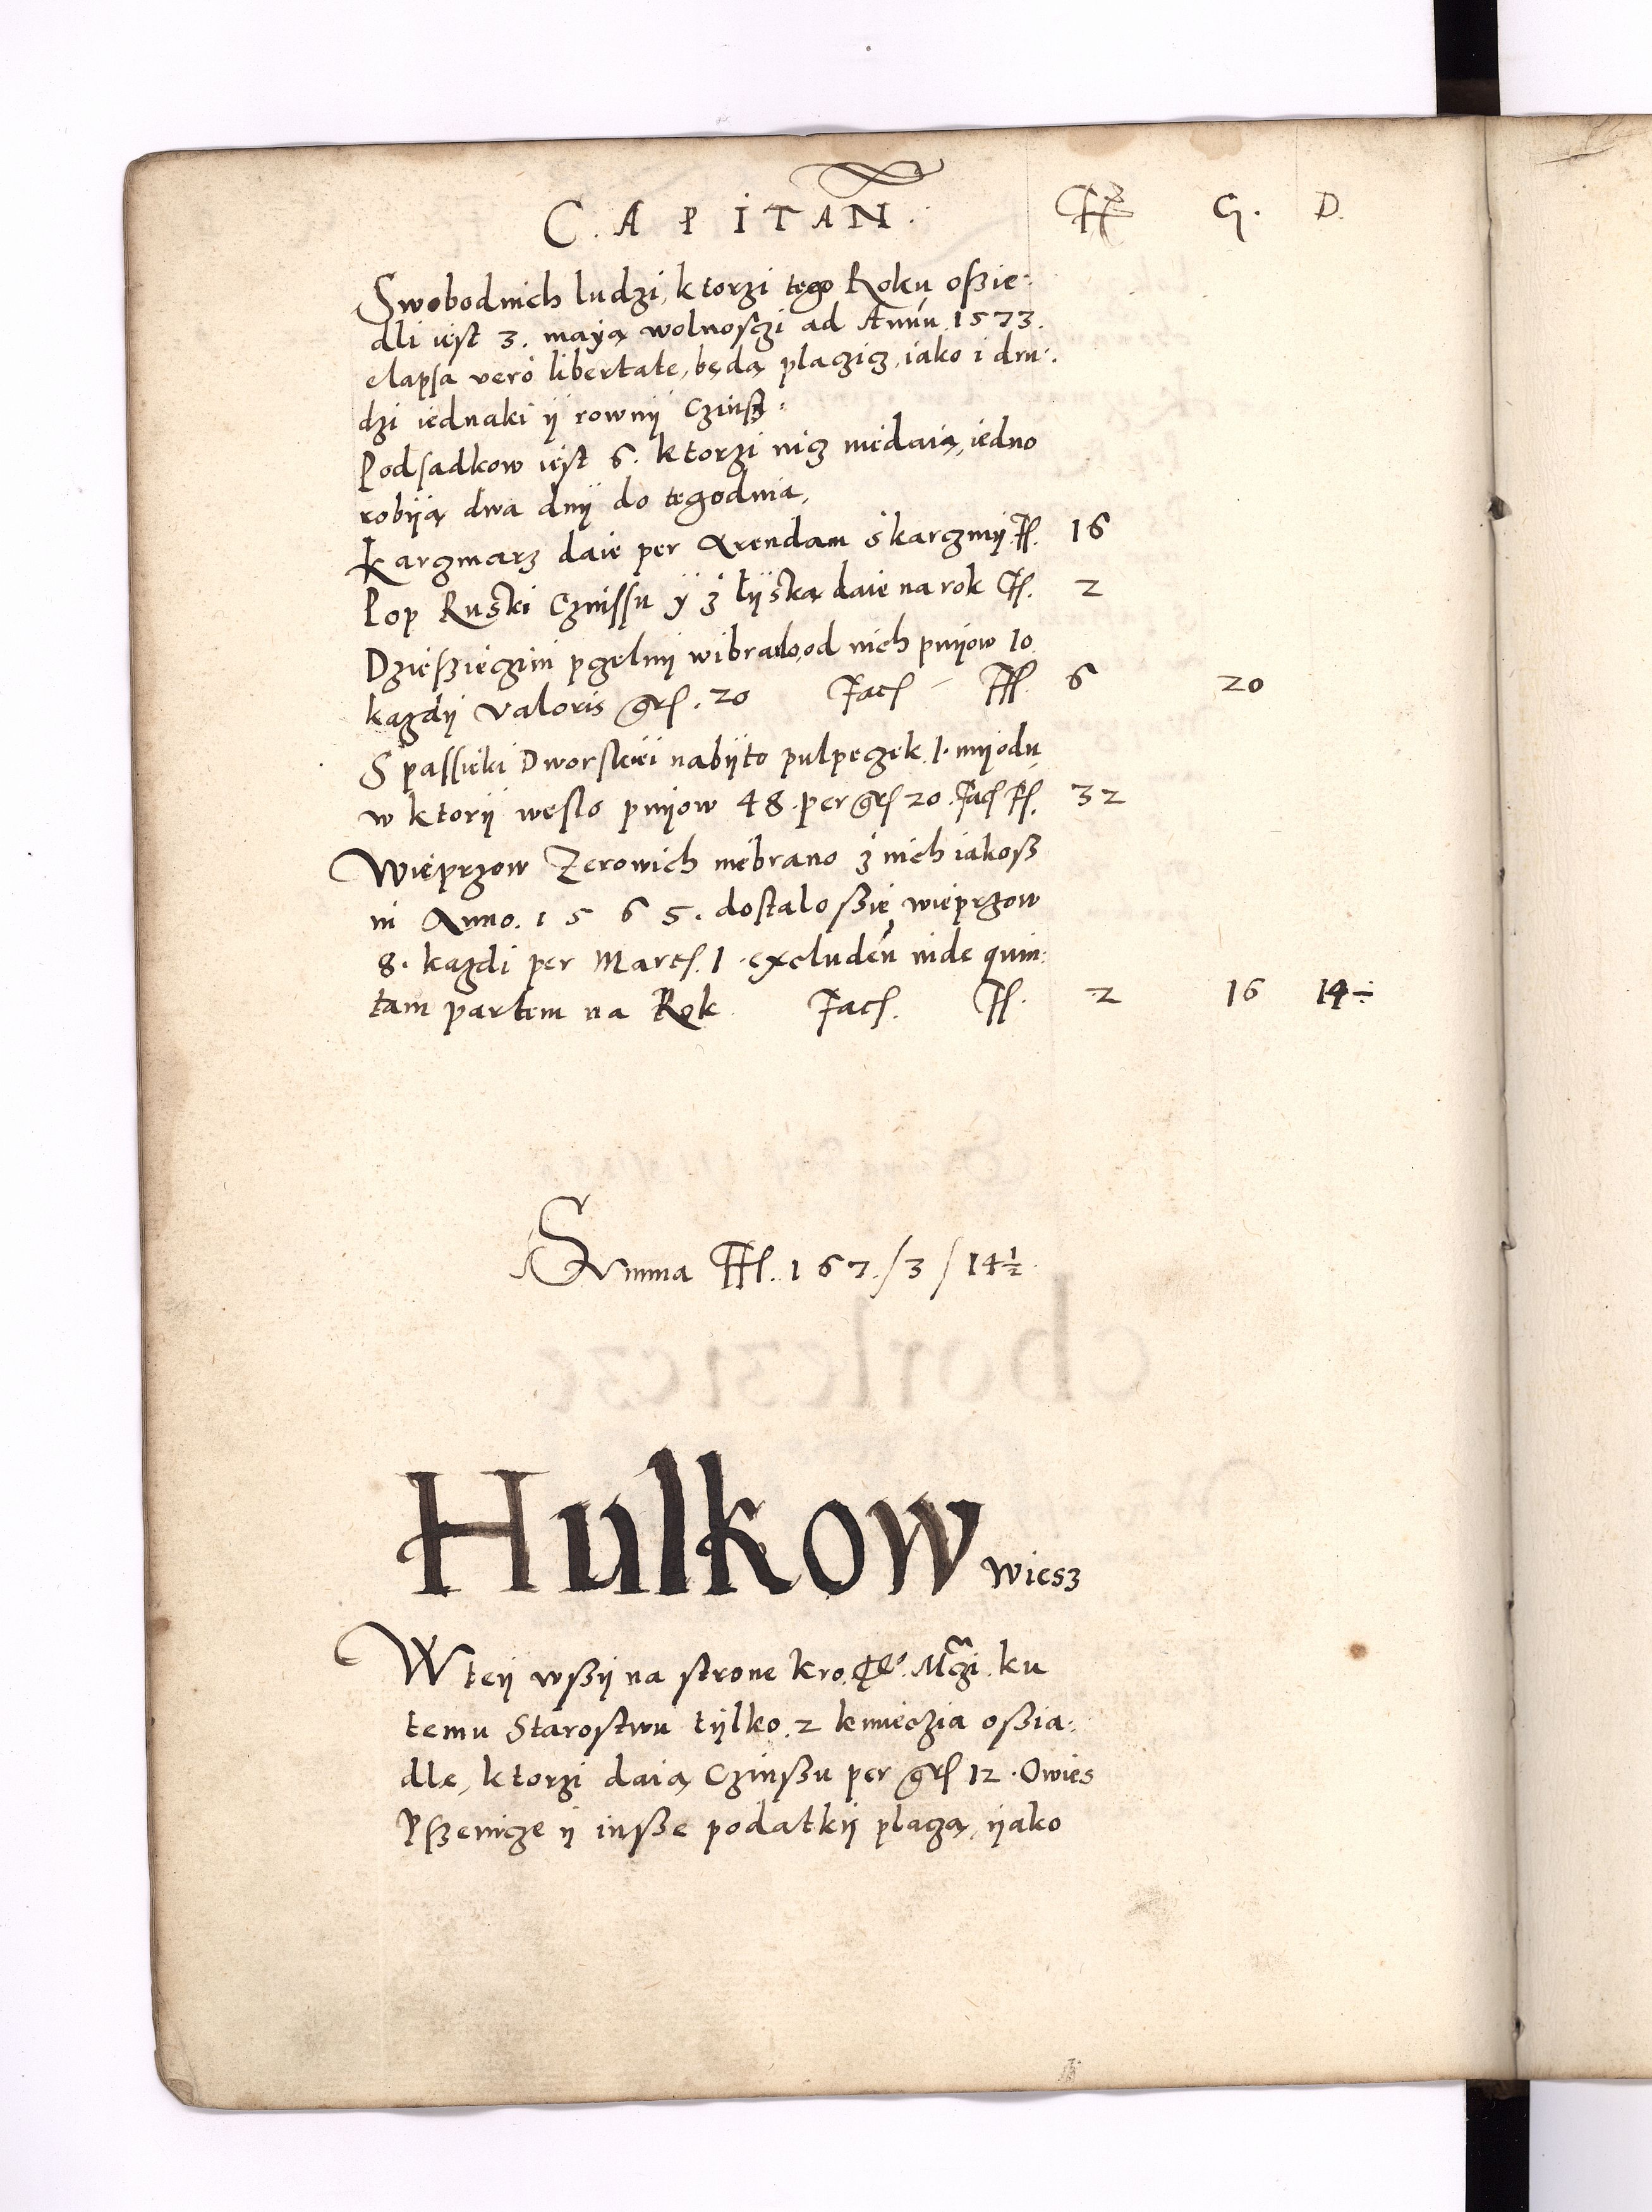 CAPITAN. G. D.
Swobodnich ludzi, ktorzi tego Roku oßie-
dli iest 3. mayą wolnosczi ad Annu. 1573.
elapsa vero libertate, będą placzicz, iako i dru-
dzi iednaki ij rownij Czinß.
Podsadkow iest 6. ktorzi nicz niedaią, iedno
robiją dwa dnij do tegodnia,
Karczmarz daie per Arendam s karczmij 16
Pop Ruski Czinssu y z łijską daie na rok 2
Dzießiecżini pczelnij wibrano, od nich pnijow 10
kazdij valoris grs. 20 Facs 6 20
S passieki Dworskiei nabijto pulpeczek 1. mijodu
w ktorij weslo pnijow 48. per grs 20. Facs 32
Wieprzow Zerowich niebrano z nich iakoß
ni Anno. 1565. dostalo ßię wieprzow
8. kazdi per Marcs. 1 excluden inde quin-
tam partem na Rok Facs. 2 16 14 ÷
Summa 167 / 3 / 14 ½
Hulkow wiesz
W teij wßij na strone kro. Mczi. ku
temu Starostwu tijlko 2 kmieczia oßia-
dle, ktorzi daią Czinßu per grs 12. Owies
Pßenicze ij inße podatkij placzą, ijako